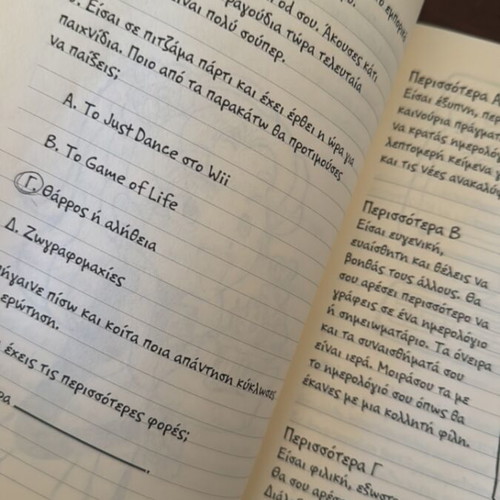 το εμπορικό
od σου. Άκουσες κάτι
τραγούδια τώρα τελευταία
είναι πολύ σούπερ.
Είσαι σε πιτζάμα πάρτι και έχει έρθει η ώρα για
παιχνίδια. Ποιο από τα παρακάτω θα προτιμούσες
να παίξεις;
Α. Το Just Dance στο Wii
Β. Το Game of Life
Γ. Θάρρος ή αλήθεια
Δ. Ζωγραφομαχίες
πίσω και κοίτα ποια απάντηση κύκλωσες
ερώτηση.
έχεις τις περισσότερες φορές;
Περισσότερα Α
Είσαι έξυπνη,
καινούρια
να κρατάς
λεπτομερή κείμενα
και τις νέες
Περισσότερα Β
Είσαι ευγενική,
ευαίσθητη και θέλεις να
βοηθάς τους άλλους. Θα
σου αρέσει περισσότερο να
γράφεις σε ένα ημερολόγιο
ή σημειωματάριο. Τα όνειρα
και τα συναισθήματά σου
είναι ιερά. Μοιράσου τα με
το ημερολόγιό σου όπως θα
έκανες με μια κολλητή φίλη.
Περισσότερα Γ
Είσαι φιλική,
θα σου